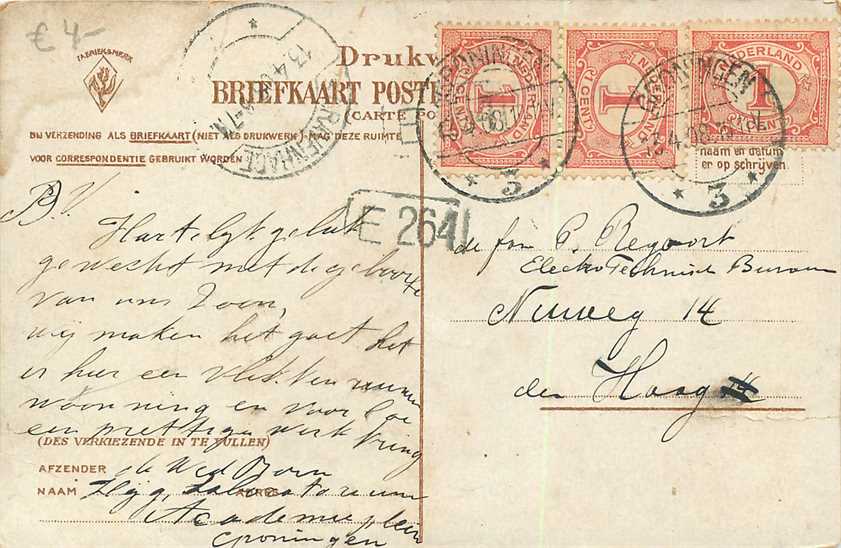 € 4-
FABRIEKSMERK
Drukw
BRIEFKAART POST
(CARTE PO
BIJ VERZENDING ALS BRIEFKAART (NIET ALS DRUKWERK) MAG DEZE RUIMTE
VOOR CORRESPONDENTIE GEBRUIKT WORDEN
'S GRAVENHAGE
13.4.0
GRONINGEN
3
NEDERLAND
1
CENT
NEDERLAND
1
CENT
GRONINGEN
13.4.08
3
NEDERLAND
1
CENT
naam en datum
er op schrijven
E 264
B. V.
Hartelijk geluk
gewenscht met de geboorte
van uns Zoon,
wij maken het goed
er hier een
woonning en voor
een prettigen werk kring
(DES VERKIEZENDE IN TE VULLEN)
AFZENDER de Wed Born
NAAM Hyg. Laboratorium
ADRES
Academieplein
Groningen
de fra P. Regoort
Electro Technisch Bureau
Nieuweg 14
den Haag